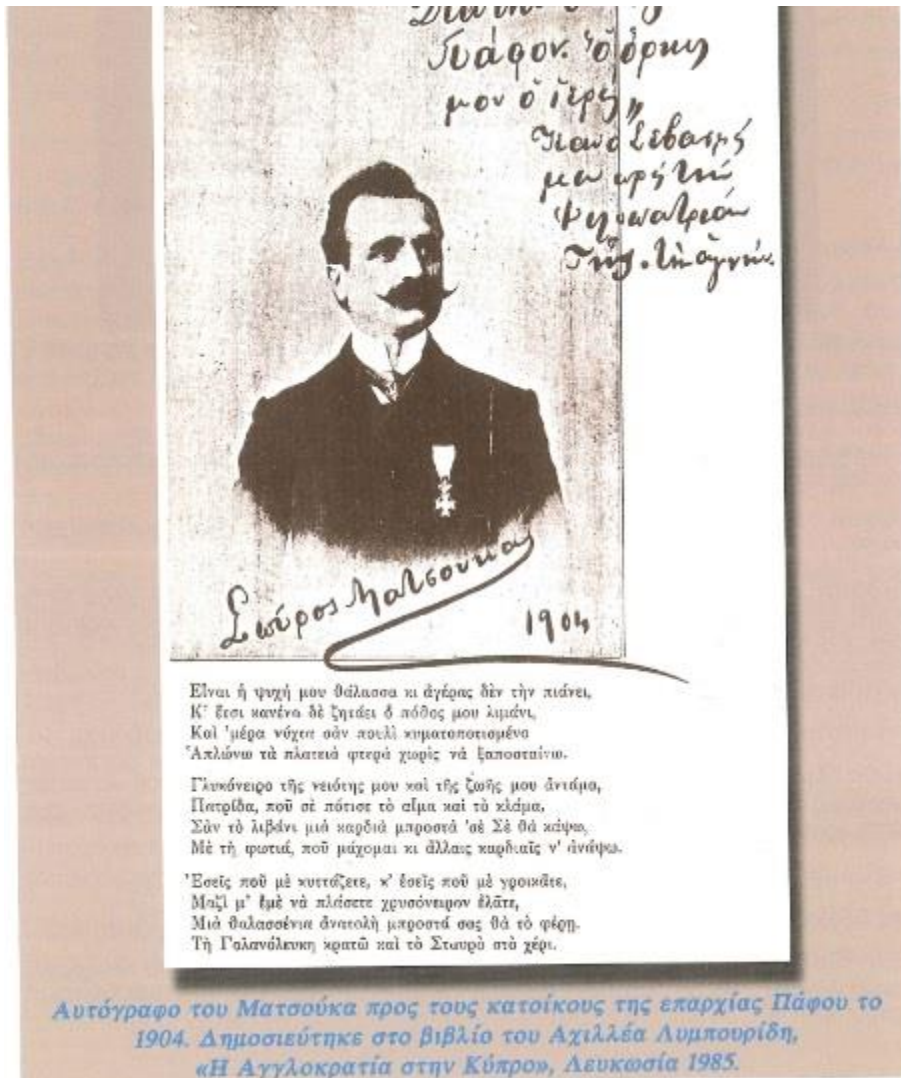 Πάφον. Ὁ ὅρκος
μου ὁ ἱερός„
Σεβασμὸς
μου πρὸς τὴν
Φιλοπατρίαν
Σπύρος Ματσούκας
1904
Εἶναι ἡ ψυχή μου θάλασσα κι ἀγέρας δὲν τὴν πιάνει,
Κ' ἔτσι κανένα δὲ ζητάει ὁ πόθος μου λιμάνι,
Καὶ 'μέρα νύχτα σὰν πουλὶ κυματοποτισμένο
Ἁπλώνω τὰ πλατειὰ φτερὰ χωρὶς νὰ ξαποσταίνω.
Γλυκόνειρο τῆς νειότης μου καὶ τῆς ζωῆς μου ἀντάμα,
Πατρίδα, ποῦ σὲ πότισε τὸ αἷμα καὶ τὸ κλάμα,
Σὰν τὸ λιβάνι μιὰ καρδιὰ μπροστὰ 'σὲ Σὲ θὰ κάψω,
Μὲ τὴ φωτιά, ποῦ μάχομαι κι ἄλλαις καρδιαῖς ν' ἀνάψω.
Ἐσεῖς ποῦ μὲ κυττάζετε, κ' ἐσεῖς ποῦ μὲ γροικᾶτε,
Μαζὶ μ' ἐμὲ νὰ πλάσετε χρυσόνειρον ἐλᾶτε,
Μιὰ θαλασσένια ἀνατολὴ μπροστά σας θὰ τὸ φέρῃ.
Τὴ Γαλανόλευκη κρατῶ καὶ τὸ Σταυρὸ στὸ χέρι.
Αυτόγραφο του Ματσούκα προς τους κατοίκους της επαρχίας Πάφου το
1904. Δημοσιεύτηκε στο βιβλίο του Αχιλλέα Λυμπουρίδη,
«Η Αγγλοκρατία στην Κύπρο», Λευκωσία 1985.